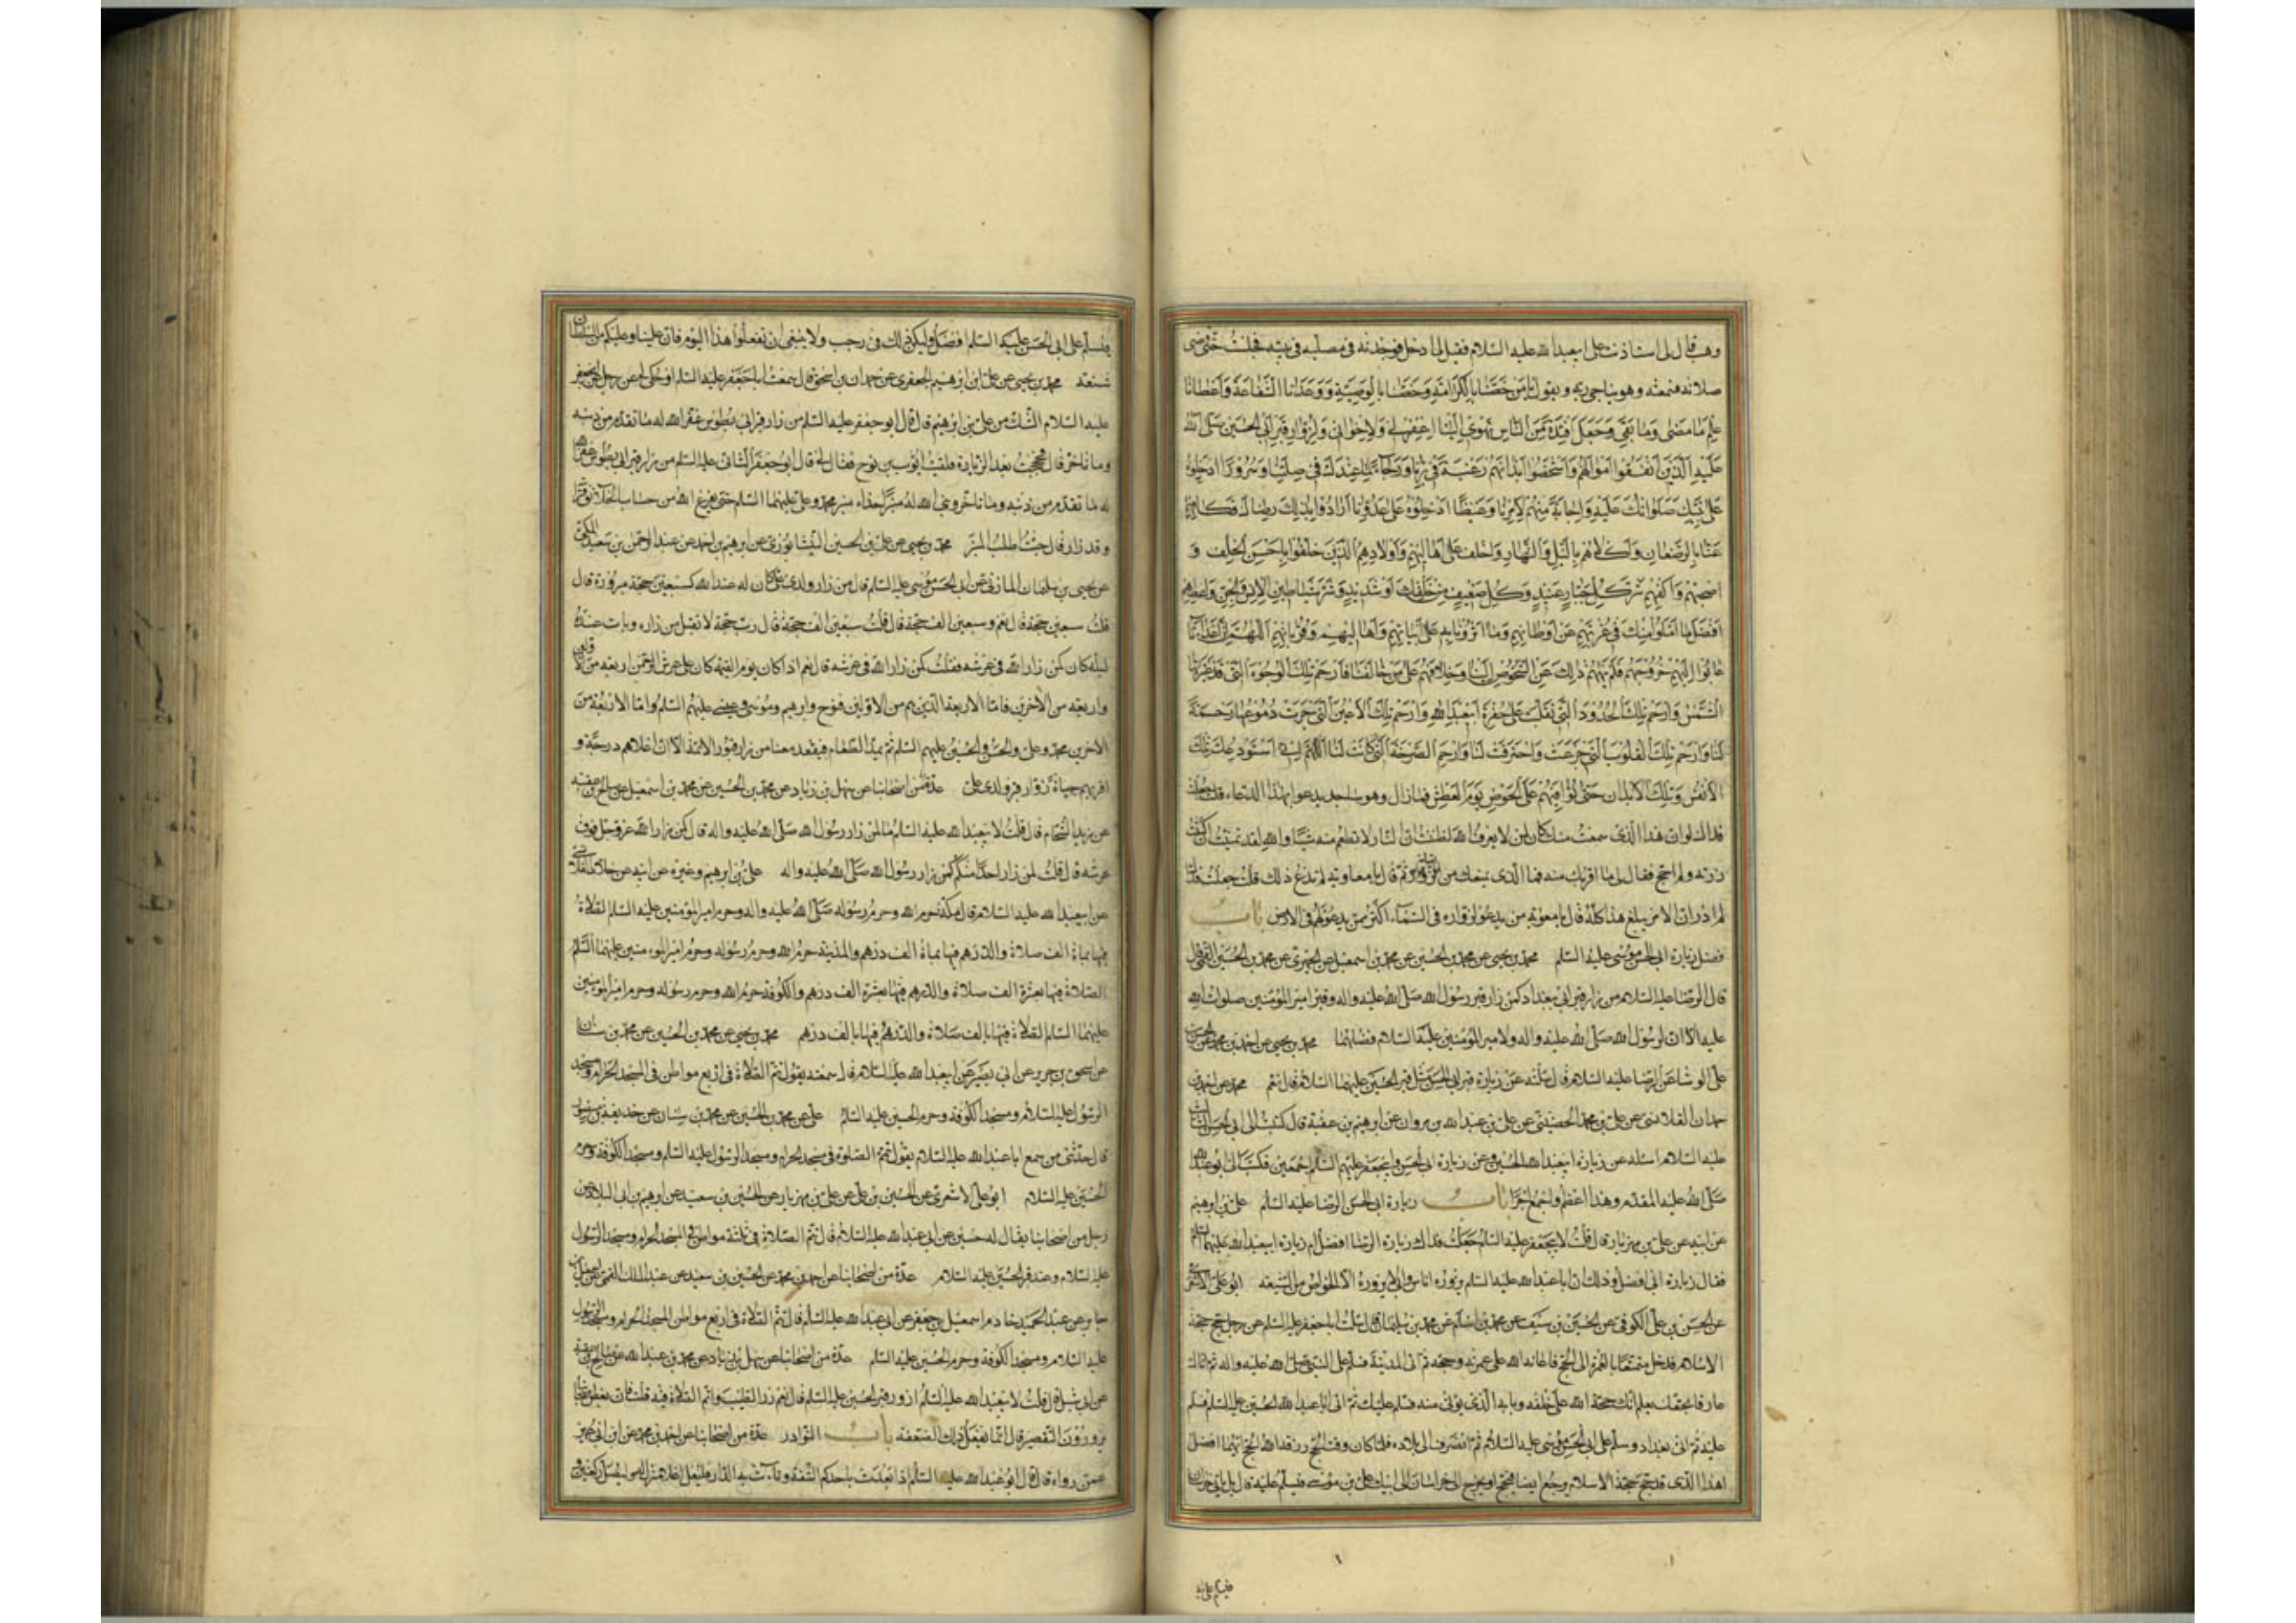 وهب قال لى استاذنت على ابيعبد الله عليه السلام فقيل لى ادخل فوجدته فى مصلاه فى بيته فجلست حتى قضى
صلاته فسمعته وهو يناجى ربه ويقول يا من خصنا بالكرامة وخصنا بالوصية ووعدنا الشفاعة واعطانا
علم ما مضى وما بقى وجعل افئدة من الناس تهوى الينا اغفر لى ولاخوانى ولزوار قبر ابى الحسين صلى الله
عليه الذين انفقوا اموالهم واشخصوا ابدانهم رغبة فى برنا ورجاء لما عندك فى صلتنا وسرورا ادخلوه
على نبيك صلواتك عليه واجابة منهم لامرنا وغيظا ادخلوه على عدونا ارادوا بذلك رضاك فكافهم
عنا بالرضوان واكلاهم بالليل والنهار واخلف على اهاليهم واولادهم الذين خلفوا باحسن الخلف و
اصحبهم واكفهم شر كل جبار عنيد وكل ضعيف من خلقك او شديد وشر شياطين الانس والجن واعطهم
افضل ما املوا منك فى غربتهم عن اوطانهم وما اثرونا به على ابنائهم واهاليهم وقرباتهم اللهم ان اعدائنا
عابوا عليهم خروجهم فلم ينههم ذلك عن الشخوص الينا وخلافهم على من خالفنا فارحم تلك الوجوه التى قد غيرتها
الشمس وارحم تلك الخدود التى تقلبت على حفرة ابيعبد الله وارحم تلك الاعين التى جرت دموعها رحمة
لنا وارحم تلك القلوب التى جزعت واحترقت لنا وارحم الصرخة التى كانت لنا اللهم انى استودعك تلك
الانفس وتلك الابدان حتى نوافيهم على الحوض يوم العطش فما زال وهو ساجد يدعو بهذا الدعاء فلما
فداك لو ان هذا الذى سمعت منك كان لمن لا يعرف الله لظننت ان النار لا تطعم منه شيئا والله لقد تمنيت ان كنت
زرته ولم احج فقال لى ما اقربك منه فما الذى يمنعك من ثم قال يا معاوية لم تدع ذلك قلت جعلت فداك
لم ادر ان الامر يبلغ هذا كله قال يا معوية من يدعو لزواره فى السماء اكثر ممن يدعو لهم فى الارض باب
فضل زيارة ابى الحسن موسى عليه السلم محمد بن يحيى عن محمد بن الحسين عن محمد بن اسمعيل عن الخيبرى عن محمد بن الحسين القمى قال
قال الرضا عليه السلام من زار قبر ابى ببغداد كمن زار قبر رسول الله صلى الله عليه واله وقبر امير المؤمنين صلوات الله
عليه الا ان لرسول الله صلى الله عليه واله ولامير المؤمنين عليه السلام فضلهما محمد بن يحيى عن احمد بن محمد عن الحسن
على الوشا عن الرضا عليه السلام قال سئلته عن زيارة قبر ابى الحسن مثل قبر الحسين عليهما السلام قال نعم محمد عن احمد بن
حمدان القلانسى عن على بن محمد الحضينى عن على بن عبد الله بن مروان عن ابرهيم بن عقبة قال كتبت الى ابى الحسن الثالث
عليه السلام اسئله عن زيارة ابيعبد الله الحسين وعن زيارة ابى الحسن وابيجعفر عليهم السلم اجمعين فكتب الى ابو عبد الله
صلى الله عليه المقدم وهذا اعظم واجمع اجرا باب زيارة ابى الحسن الرضا عليه السلم على بن ابرهيم
عن ابيه عن على بن مهزيار قال قلت لابيجعفر عليه السلم جعلت فداك زيارة الرضا افضل ام زيارة ابيعبد الله عليهما السلم
فقال زيارة ابى افضل وذلك ان ابا عبد الله عليه السلم يزوره الناس وابى لا يزوره الا الخواص من الشيعة ابو على الاشعرى
عن الحسن بن على الكوفى عن الحسين بن سيف عن محمد بن اسلم عن محمد بن سليمان قال سئلت ابا جعفر عليه السلم عن رجل حج حجة
الاسلام فدخل متمتعا بالعمرة الى الحج فاعانه الله على عمرته وحجه ثم اتى المدينة فسلم على النبى صلى الله عليه واله ثم اتاك
عارفا بحقك يعلم انك حجة الله على خلقه وبابه الذى يوتى منه فسلم عليك ثم اتى ابا عبد الله الحسين عليه السلم فسلم
عليه ثم اتى بغداد وسلم على ابى الحسن موسى عليه السلام ثم انصرف الى بلاده فلما كان وقت الحج رزقه الله الحج فايهما افضل
اهذا الذى قد حج حجة الاسلام يرجع ايضا فيحج او يخرج الى خراسان الى ابيك على بن موسى فيسلم عليه قال بل ياتى خراسان
فيسلم عليه
فيسلم على ابى الحسن عليه السلم افضل وليكن ذلك فى رجب ولا ينبغى ان تفعلوا هذا اليوم فان علينا وعليكم من السلطان
شنعة محمد بن يحيى عن على بن ابرهيم الجعفرى عن حمدان بن اسحق قال سمعت ابا جعفر عليه السلم او حكى لى عن رجل عن ابى جعفر
عليه السلام الشك من على بن ابرهيم قال قال ابو جعفر عليه السلم من زار قبر ابى بطوس غفر الله له ما تقدم من ذنبه
وما تاخر قال فحججت بعد الزيارة فلقيت ايوب بن نوح فقال لى قال ابو جعفر الثانى عليه السلم من زار قبر ابى بطوس غفر الله
له ما تقدم من ذنبه وما تاخر وبنى الله له منبرا حذاء منبر محمد وعلى عليهما السلم حتى يفرغ الله من حساب الخلائق
وقد زار فقال جئت اطلب المنبر محمد بن يحيى عن على بن الحسين النيشابورى عن ابرهيم بن احمد عن عبد الرحمن بن سعيد المكى
عن يحيى بن سليمان المازنى عن ابى الحسن موسى عليه السلم قال من زار قبر ولدى على كان له عند الله كسبعين حجة مبرورة قال
قلت سبعين حجة قال نعم وسبعين الف حجة قال قلت سبعين الف حجة قال رب حجة لا تقبل من زاره وبات عنده
ليلة كان كمن زار الله فى عرشه فقلت كمن زار الله فى عرشه قال نعم اذا كان يوم القيمة كان على عرش الرحمن اربعة من الاولين
واربعة من الاخرين فاما الاربعة الذين هم من الاولين فنوح وابرهيم وموسى وعيسى عليهم السلم واما الاربعة من
الاخرين محمد وعلى والحسن والحسين عليهم السلم ثم يمد الطعام فيقعد معنا من زار قبور الائمة الا ان اعلاهم درجة و
اقربهم حباة زوار قبر ولدى على عدة من اصحابنا عن سهل بن زياد عن محمد بن الحسين عن محمد بن اسمعيل عن صالح بن عقبة
عن زيد الشحام قال قلت لابيعبد الله عليه السلم ما لمن زار رسول الله صلى الله عليه واله قال كمن زار الله عز وجل فوق
عرشه قال قلت لمن زار احدا منكم كمن زار رسول الله صلى الله عليه واله على بن ابرهيم وغيره عن ابيه عن خلاد القلانسى
عن ابيعبد الله عليه السلام قال مكة حرم الله وحرم رسوله صلى الله عليه واله وحرم امير المؤمنين عليه السلم الصلاة
فيها بماة الف صلاة والدرهم فيها بماة الف درهم والمدينة حرم الله وحرم رسوله وحرم امير المؤمنين عليهما السلم
الصلاة فيها بعشرة الف صلاة والدرهم فيها بعشرة الف درهم والكوفة حرم الله وحرم رسوله وحرم امير المؤمنين
عليهما السلم الصلاة فيها بالف صلاة والدرهم فيها بالف درهم محمد بن يحيى عن محمد بن الحسين عن محمد بن سنان
عن اسحق بن جرير عن ابى بصير عن ابيعبد الله عليه السلام قال سمعته يقول تتم الصلاة فى اربع مواطن فى المسجد الحرام ومسجد
الرسول عليه السلام ومسجد الكوفة وحرم الحسين عليه السلم على عن محمد بن الحسين عن محمد بن سنان عن حذيفة بن منصور
قال حدثنى من سمع ابا عبد الله عليه السلام يقول تتم الصلوة فى مسجد الحرام ومسجد الرسول عليه السلم ومسجد الكوفة وحرم
الحسين عليه السلام ابو على الاشعرى عن الحسين بن على عن على بن مهزيار عن الحسين بن سعيد عن ابرهيم بن ابى البلاد عن
رجل من اصحابنا يقال له حسين عن ابى عبد الله عليه السلام قال تتم الصلاة فى ثلثة مواطن فى المسجد الحرام ومسجد الرسول
عليه السلام وعند قبر الحسين عليه السلام عدة من اصحابنا عن احمد بن محمد عن الحسين بن سعيد عن عبد الملك القمى عن اسمعيل بن
جابر عن عبد الحميد خادم اسمعيل بن جعفر عن ابى عبد الله عليه السلم قال تتم الصلاة فى اربع مواطن المسجد الحرام ومسجد الرسول
عليه السلام ومسجد الكوفة وحرم الحسين عليه السلم عدة من اصحابنا عن سهل بن زياد عن محمد بن عبد الله عن صالح بن عقبة
عن ابى شبل قال قلت لابيعبد الله عليه السلم ازور قبر الحسين عليه السلم قال نعم زر الطيب واتم الصلاة فيه قلت فان بعض اصحابنا
يرون التقصير قال انما يفعل ذلك الضعفة باب النوادر عدة من اصحابنا عن احمد بن محمد عن ابن ابى عمير
عمن رواه قال قال ابو عبد الله عليه السلم اذا بعدت باحدكم الشقة ونات به الدار فليعل اعلا منزل له وليصل ركعتين